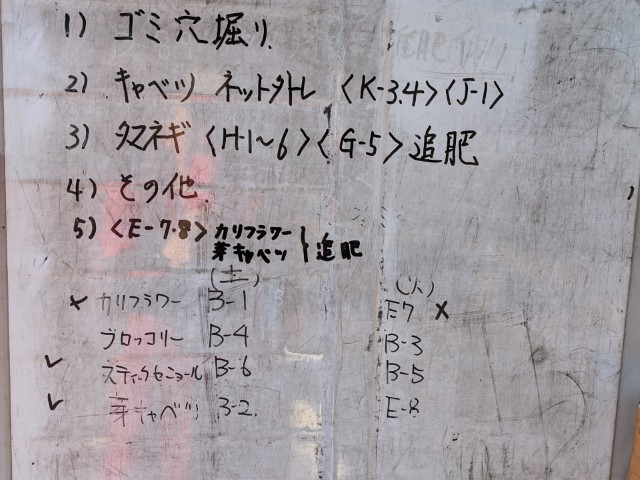 1) ゴミ穴掘り
2) キャベツ ネット外トレ <K-3.4><J-1>
3) タマネギ <H-1~6><G-5> 追肥
4) その他
5) <E-7.8> カリフラワー 芽キャベツ } 追肥
(土) (火)
× カリフラワー B-1 E7 ×
ブロッコリー B-4 B-3
✓ スティックセニョール B-6 B-5
✓ 芽キャベツ B-2. E-8